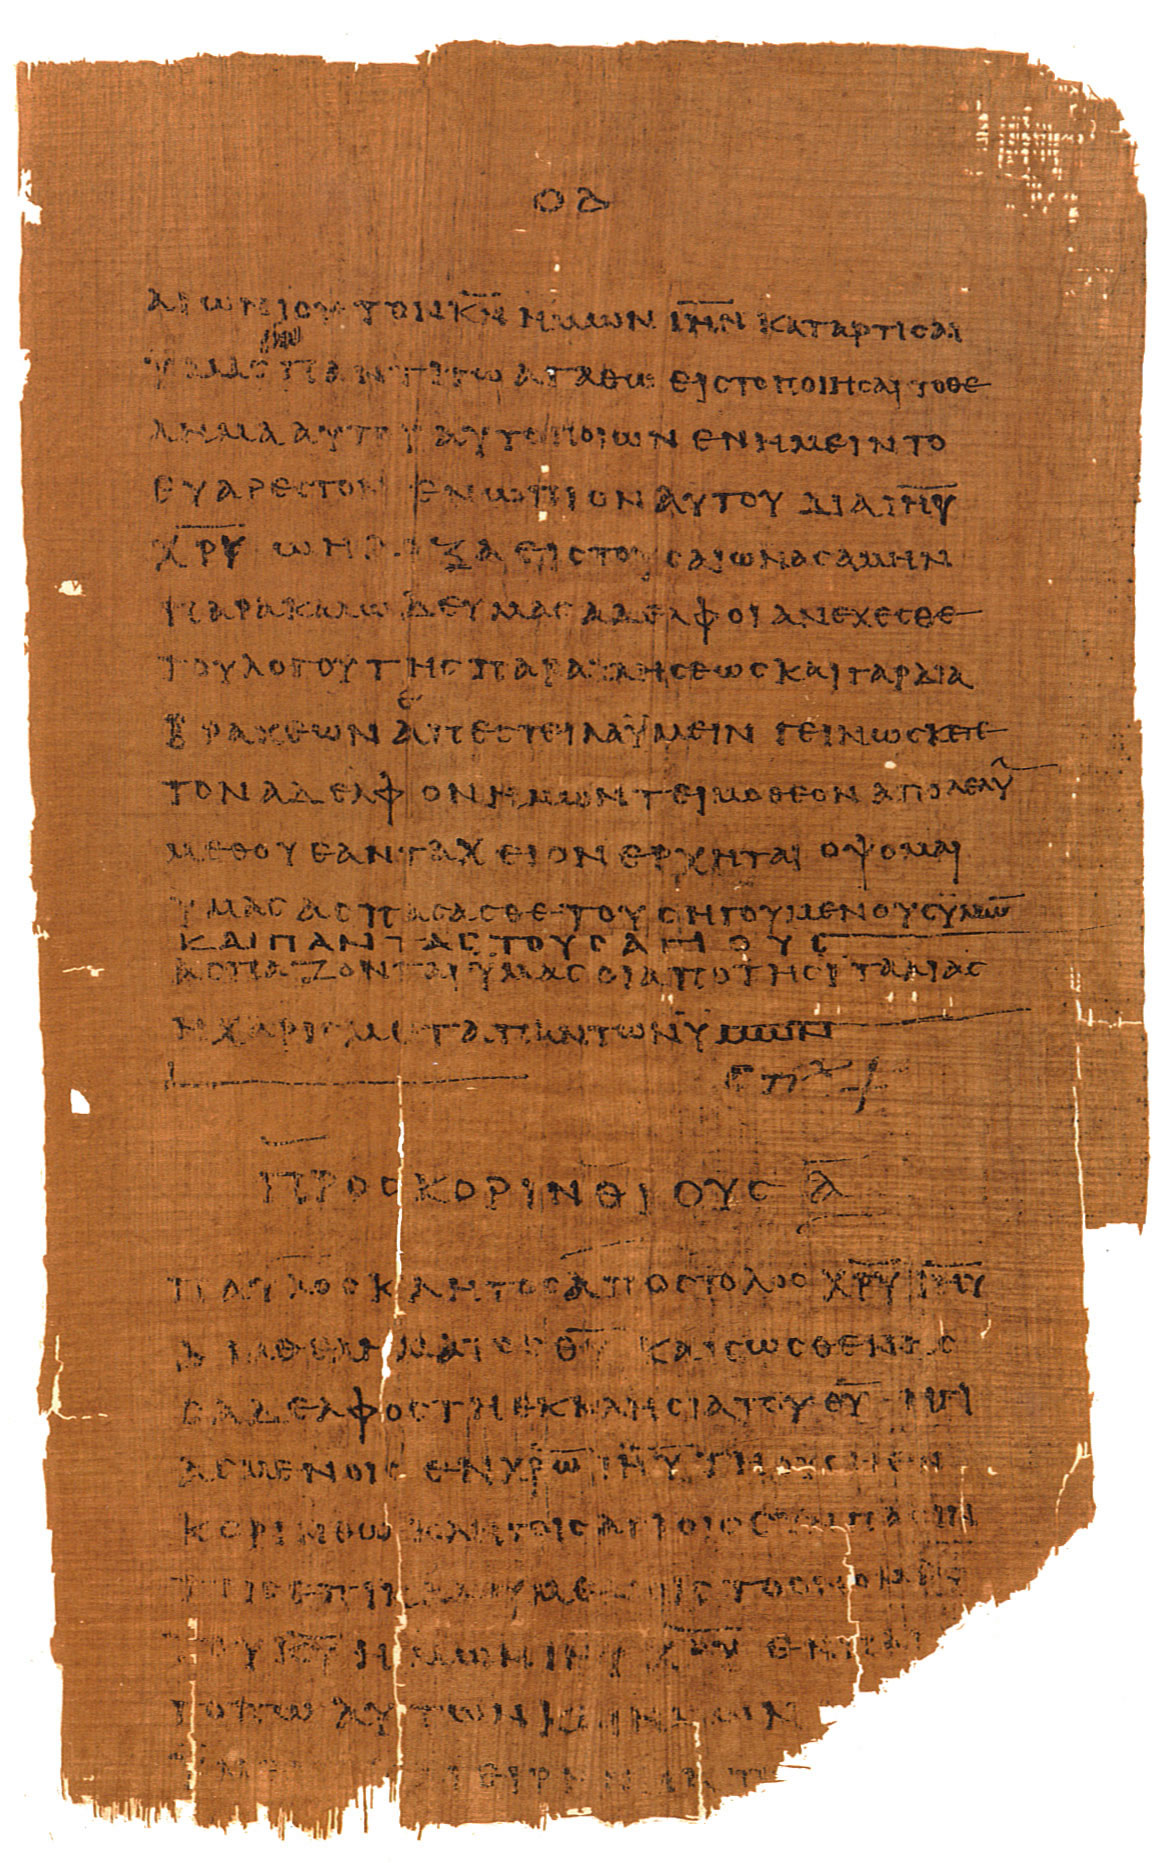 ΟΔ
ΑΙΩΝΙΟΥ ΤΟΝ Κ̅Ν̅ ΗΜΩΝ Ι̅Η̅Ν̅ ΚΑΤΑΡΤΙΣΑΙ
ΥΜΑΣ ΠΑΝΤΙ ΤΩ ΑΓΑΘΩ ΕΙΣ ΤΟ ΠΟΙΗΣΑΙ ΤΟ ΘΕ
ΛΗΜΑ ΑΥΤΟΥ ΑΥΤΟ ΠΟΙΩΝ ΕΝ ΗΜΕΙΝ ΤΟ
ΕΥΑΡΕΣΤΟΝ ΕΝΩΠΙΟΝ ΑΥΤΟΥ ΔΙΑ Ι̅Η̅Υ̅
Χ̅Ρ̅Υ̅ Ω Η ΔΟΞΑ ΕΙΣ ΤΟΥΣ ΑΙΩΝΑΣ ΑΜΗΝ
ΠΑΡΑΚΑΛΩ ΔΕ ΥΜΑΣ ΑΔΕΛΦΟΙ ΑΝΕΧΕΣΘΕ
ΤΟΥ ΛΟΓΟΥ ΤΗΣ ΠΑΡΑΚΛΗΣΕΩΣ ΚΑΙ ΓΑΡ ΔΙΑ
ΒΡΑΧΕΩΝ ΑΠΕΣΤΕΙΛΑ ΥΜΕΙΝ ΓΕΙΝΩΣΚΕΤΕ
ΤΟΝ ΑΔΕΛΦΟΝ ΗΜΩΝ ΤΕΙΜΟΘΕΟΝ ΑΠΟΛΕΛΥ
ΜΕΘ ΟΥ ΕΑΝ ΤΑΧΕΙΟΝ ΕΡΧΗΤΑΙ ΟΨΟΜΑΙ
ΥΜΑΣ ΑΣΠΑΣΑΣΘΕ ΤΟΥΣ ΗΓΟΥΜΕΝΟΥΣ ΥΜΩ̅
ΚΑΙ ΠΑΝΤΑΣ ΤΟΥΣ ΑΓΙΟΥΣ
ΑΣΠΑΖΟΝΤΑΙ ΥΜΑΣ ΟΙ ΑΠΟ ΤΗΣ ΙΤΑΛΙΑΣ
Η ΧΑΡΙΣ ΜΕΤΑ ΠΑΝΤΩΝ ΥΜΩΝ
ΠΡΟΣ ΚΟΡΙΝΘΙΟΥΣ Α̅
ΠΑΥΛΟΣ ΚΛΗΤΟΣ ΑΠΟΣΤΟΛΟΣ Χ̅Ρ̅Υ̅ Ι̅Η̅Υ̅
ΔΙΑ ΘΕΛΗΜΑΤΟΣ Θ̅Υ̅ ΚΑΙ ΣΩΣΘΕΝΗΣ
Ο ΑΔΕΛΦΟΣ ΤΗ ΕΚΚΛΗΣΙΑ ΤΟΥ Θ̅Υ̅ ΗΓΙ
ΑΣΜΕΝΟΙΣ ΕΝ Χ̅Ρ̅Ω̅ Ι̅Η̅Υ̅ ΤΗ ΟΥΣΗ ΕΝ
ΚΟΡΙΝΘΩ ΚΛΗΤΟΙΣ ΑΓΙΟΙΣ ΣΥΝ ΠΑΣΙΝ
ΤΟΙΣ ΕΠΙΚΑΛΟΥΜΕΝΟΙΣ ΤΟ ΟΝΟΜΑ
ΤΟΥ Κ̅Υ̅ ΗΜΩΝ Ι̅Η̅Υ̅ Χ̅Ρ̅Υ̅ ΕΝ ΠΑΝΤΙ
ΤΟΠΩ ΑΥΤΩΝ ΚΑΙ ΗΜΩΝ